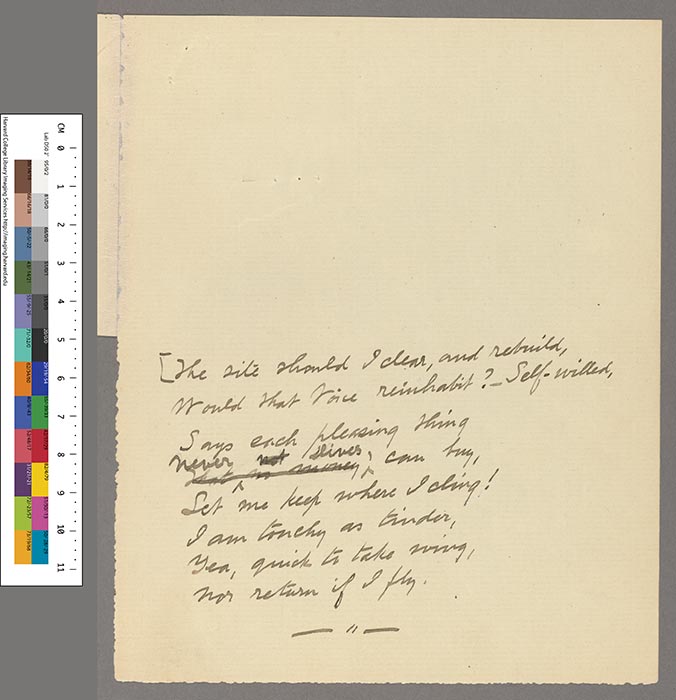 CM 0 1 2 3 4 5 6 7 8 9 10 11
Harvard College Library Imaging Services http://imaging.harvard.edu
[The site should I clear, and rebuild,
Would that Voice reinhabit? – Self-willed,
Says each pleasing thing
never not Divers
That no money can buy,
Let me keep where I cling!
I am touchy as tinder,
Yea, quick to take wing,
Nor return if I fly.